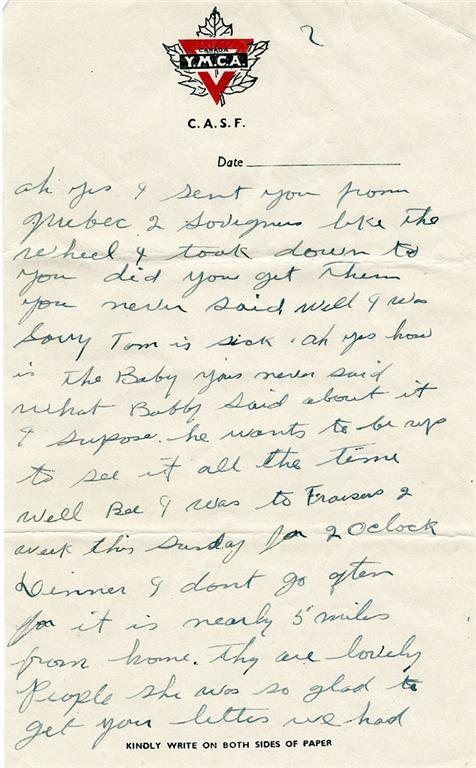 2
CANADA
Y.M.C.A.
C. A. S. F.
Date
ah yes I sent you from
Quebec 2 Sovignus like the
wheel I took down to
you did you get them
you never said well I was
Sorry Tom is sick. ah yes how
is the Baby you never said
what Bobby said about it
I supose. he wants to be up
to see it all the time
well Bee I was to Frasers 2
week this Sunday for 2 Oclock
Dinner I dont go often
for it is nearly 5 miles
from home. Thy are lovely
People she was so glad to
get your letter we had
KINDLY WRITE ON BOTH SIDES OF PAPER